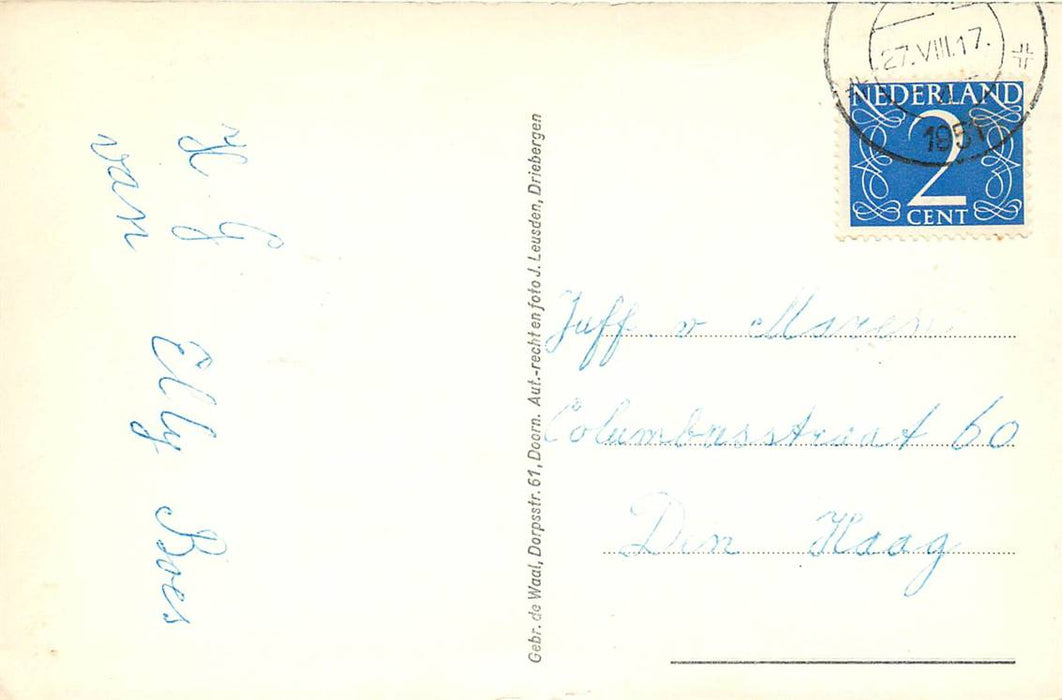 27.VIII.17.
1951
NEDERLAND
2
CENT
H G
van
Elly Boes
Gebr. de Waal, Dorpsstr. 61, Doorn. Aut.-rechten foto J. Leusden, Driebergen
Juff. v Maren
Columbusstraat 60
Den Haag